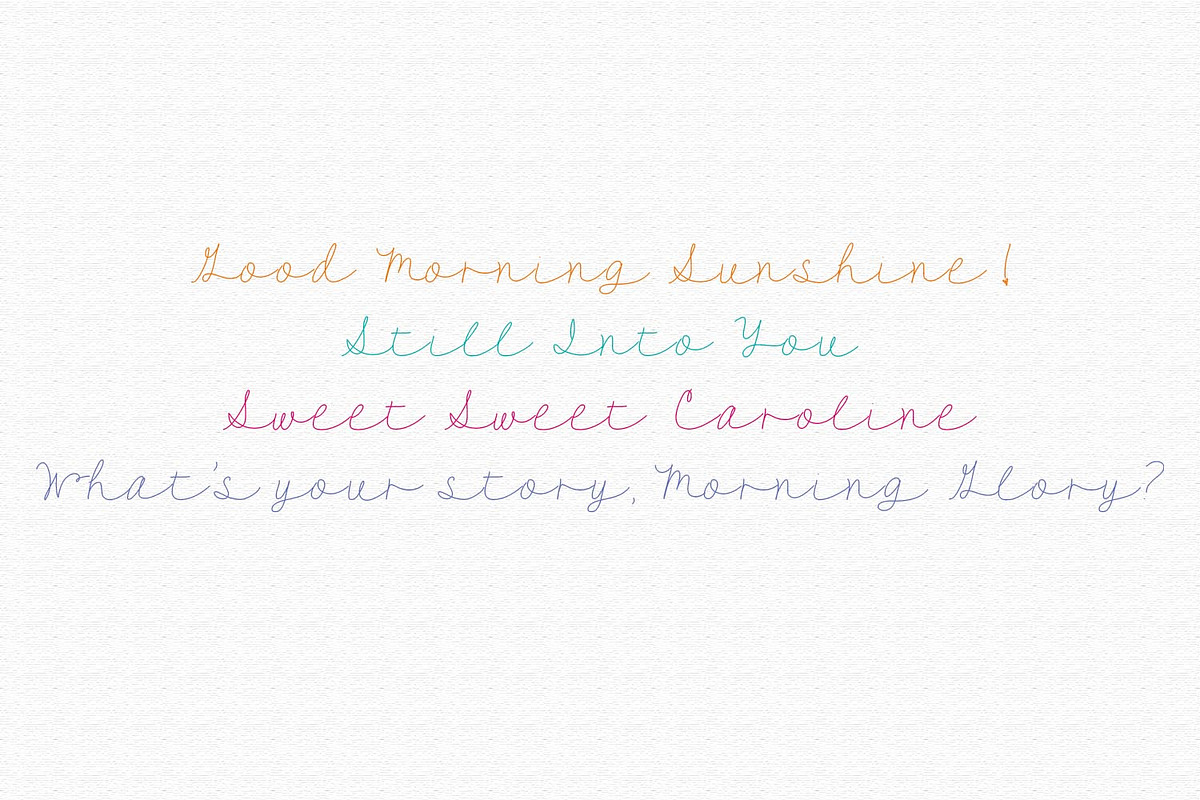 Good Morning Sunshine!
Still Into You
Sweet Sweet Caroline
What's your story, Morning Glory?